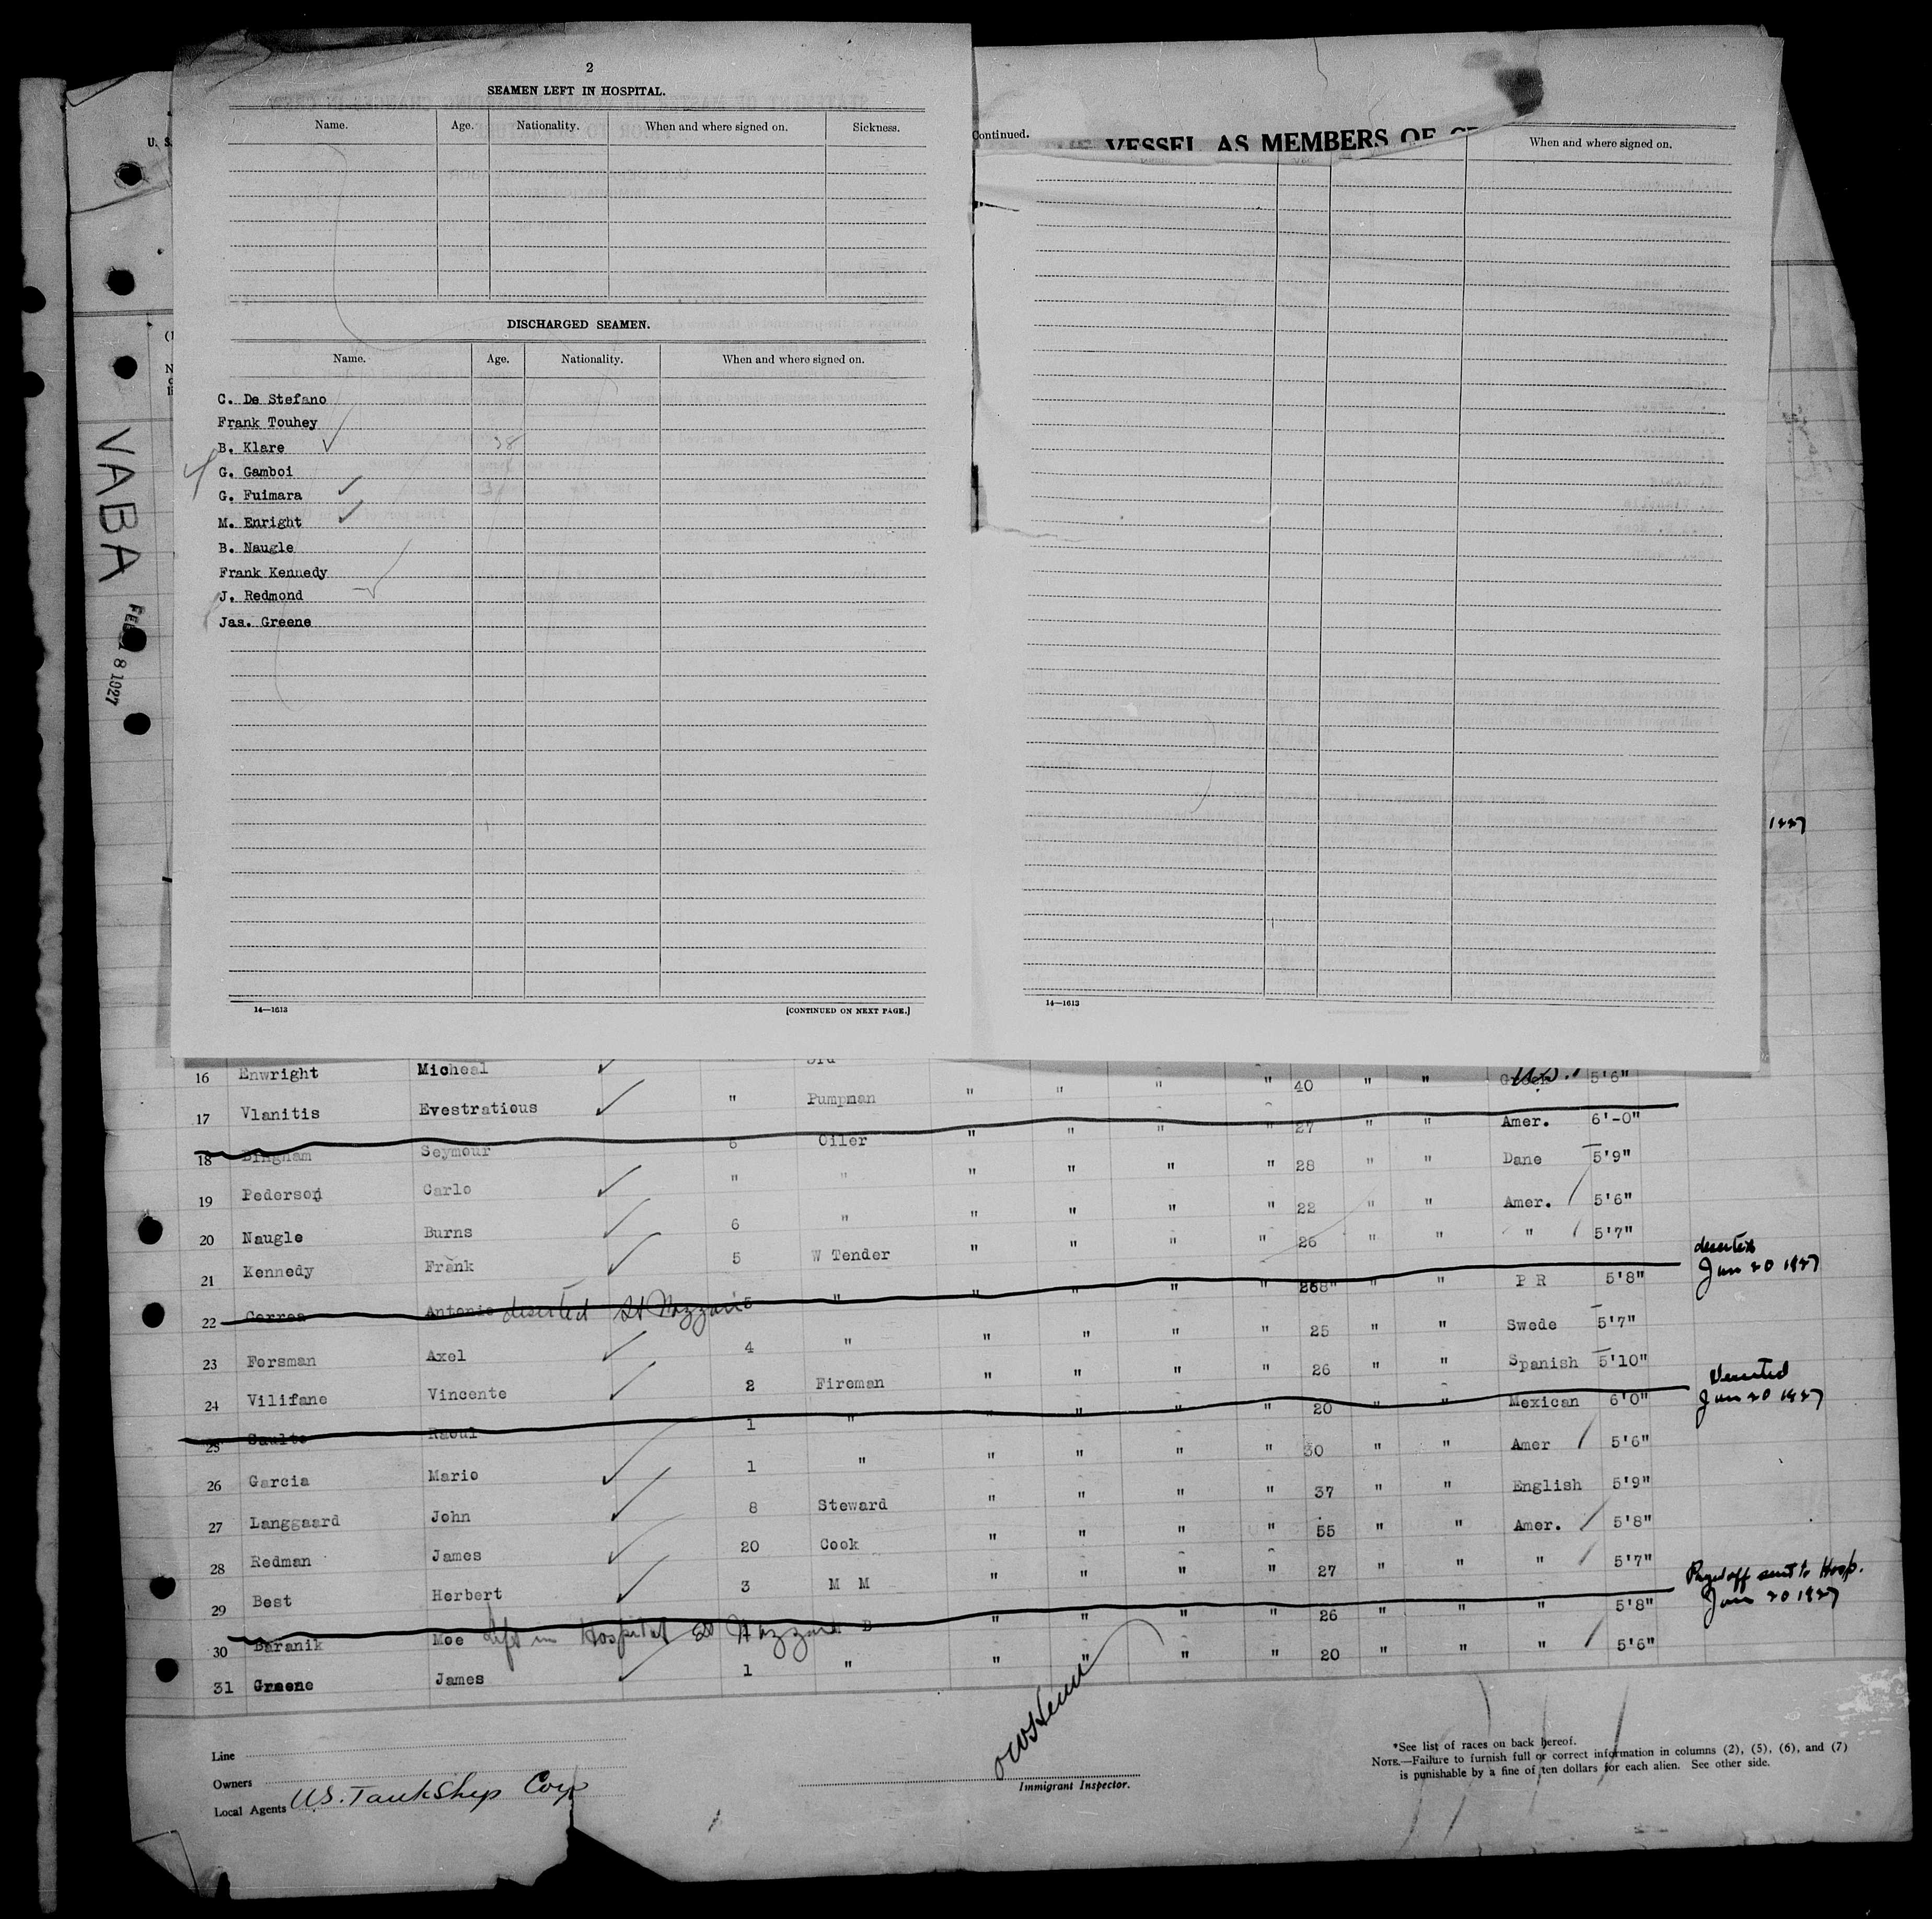 2
SEAMEN LEFT IN HOSPITAL.
Name. Age. Nationality. When and where signed on. Sickness.
DISCHARGED SEAMEN.
Name. Age. Nationality. When and where signed on.
C. De Stefano
Frank Touhey
B. Klare 38
G. Gamboi
G. Fuimara
M. Enright
B. Naugle
Frank Kennedy
J. Redmond
Jas. Greene
14—1613 [CONTINUED ON NEXT PAGE.]
Continued.
VESSEL AS MEMBERS OF
When and where signed on.
14—1613
U. S.
VABA
FEB 8 1927
1927
16 Enwright Micheal 3rd
17 Vlanitis Evestratious " Pumpman " " " " 40 " " 5'6"
18 Bingham Seymour 6 Oiler " " " " 27 " " Amer. 6'-0"
19 Pederson Carlo " " " " " " 28 " " Dane 5'9"
20 Naugle Burns 6 " " " " " 22 " " Amer. 5'6"
21 Kennedy Frank 5 W Tender " " " " 26 " " " 5'7"
22 Correa Antonio deserted St Nazzair 5 " " " " " 268" " " P R 5'8" deserted Jan 20 1927
23 Forsman Axel 4 " " " " " 25 " " Swede 5'7"
24 Vilifane Vincente 2 Fireman " " " " 26 " " Spanish 5'10"
25 Saulto Raoul 1 " " " " " 20 " " Mexican 6'0" Deserted Jan 20 1927
26 Garcia Mario 1 " " " " " 30 " " Amer 5'6"
27 Langgaard John 8 Steward " " " " 37 " " English 5'9"
28 Redman James 20 Cook " " " " 55 " " Amer. 5'8"
29 Best Herbert 3 M M " " " " 27 " " " 5'7"
30 Baranik Moe Left in Hospital St Nazzair B " " " " 26 " " " 5'8" Payed off sent to Hosp. Jan 20 1927
31 Greene James 1 " " " " " 20 " " " 5'6"
Line
Owners
Local Agents U.S. TankShip Corp
Immigrant Inspector.
*See list of races on back hereof.
NOTE.—Failure to furnish full or correct information in columns (2), (5), (6), and (7)
is punishable by a fine of ten dollars for each alien. See other side.